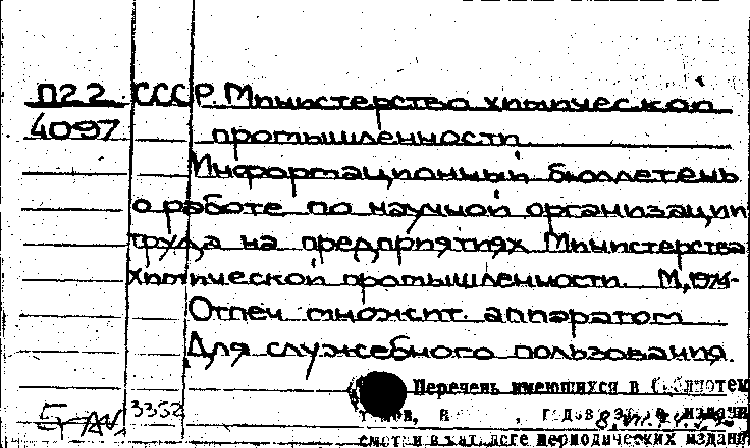 П22 СССР. Министерство химической
4097 промышленности
Информационный бюллетень
о работе по научной организации
труда на предприятиях Министерства
химической промышленности. М, 1974-
Отпеч множит. аппаратом
Для служебного пользования.
Перечень имеющихся в библиотеке
3352
смотри в каталоге периодических издани